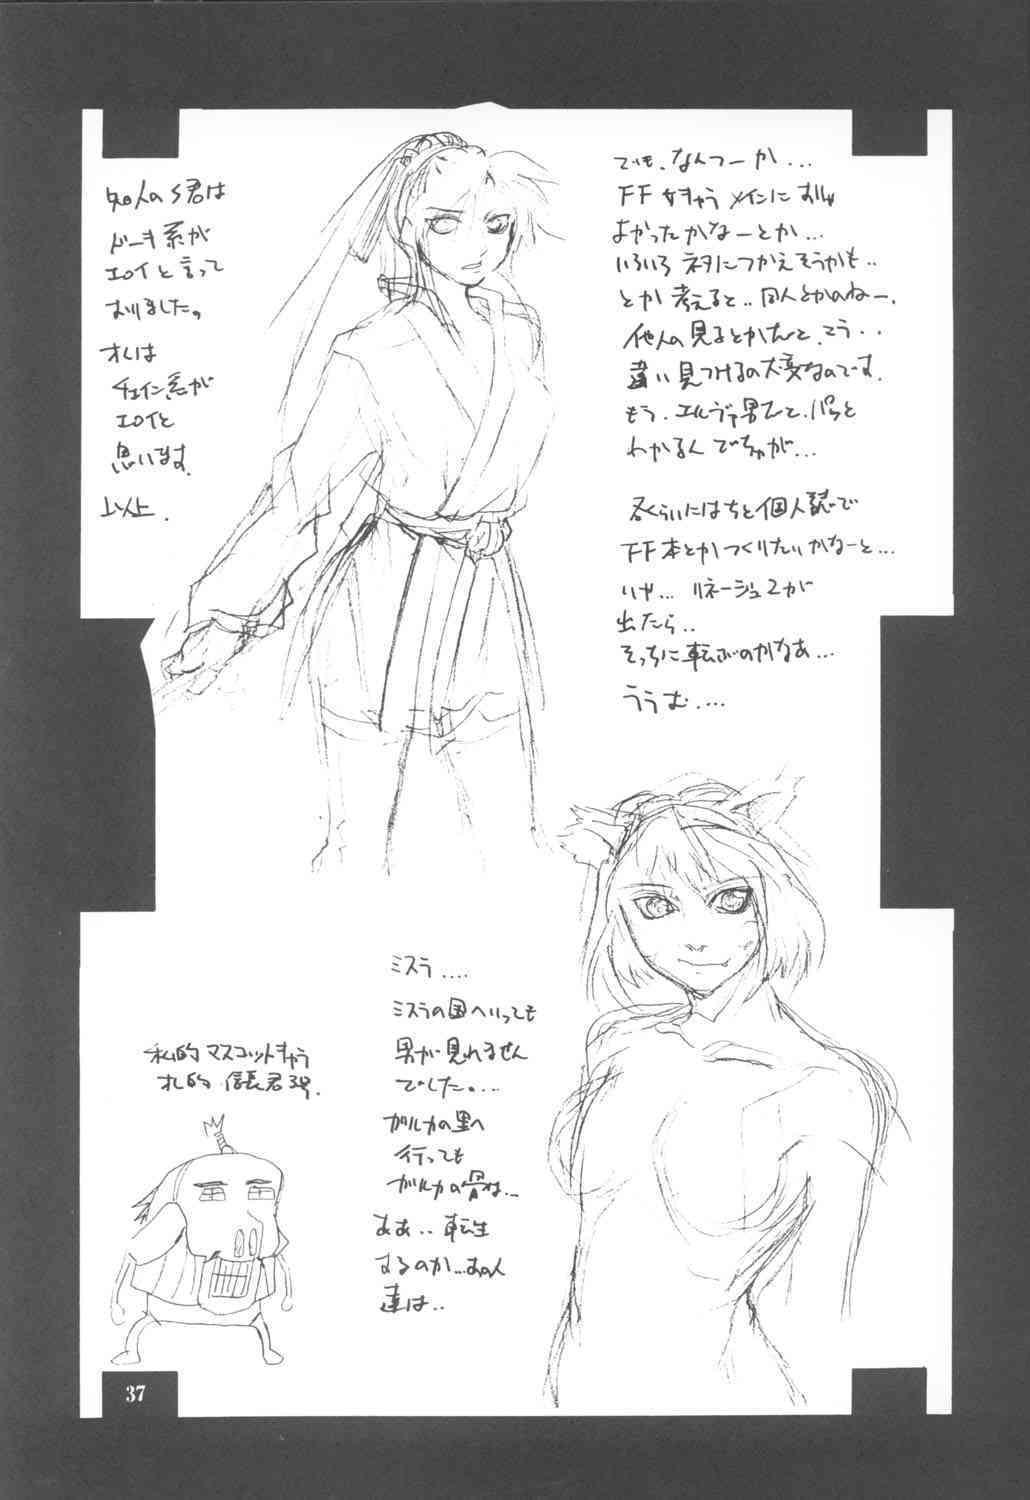 知人のS君は
ドーギ系が
エロイと言って
おりました。
オレは
チェイン系が
エロイと
思います。
以上.
でも、なんつーか...
FF女キャラ メインにすりゃ
よかったかなーとか...
いろいろ ネタにつかえそうかも..
とか 考えると.. 同人とかのねー.
他人の見るとかだと、こう..
違い見つけるの大変なのです.
もう、エルヴァ男だと、パッと
わかるんでちゅが...
冬くらいにはちと個人誌で
FF本とかつくりたいかなーと...
いや... リネージュ2が
出たら..
そっちに転ぶのかなあ...
ううむ....
ミスラ....
ミスラの国へいっても
男が見れません
でした....
ガルカの里へ
行っても
ガルカの骨は...
ああ.. 転生
するのか...あの人
達は..
私的マスコットキャラ
オレ的 信長君3号.
37